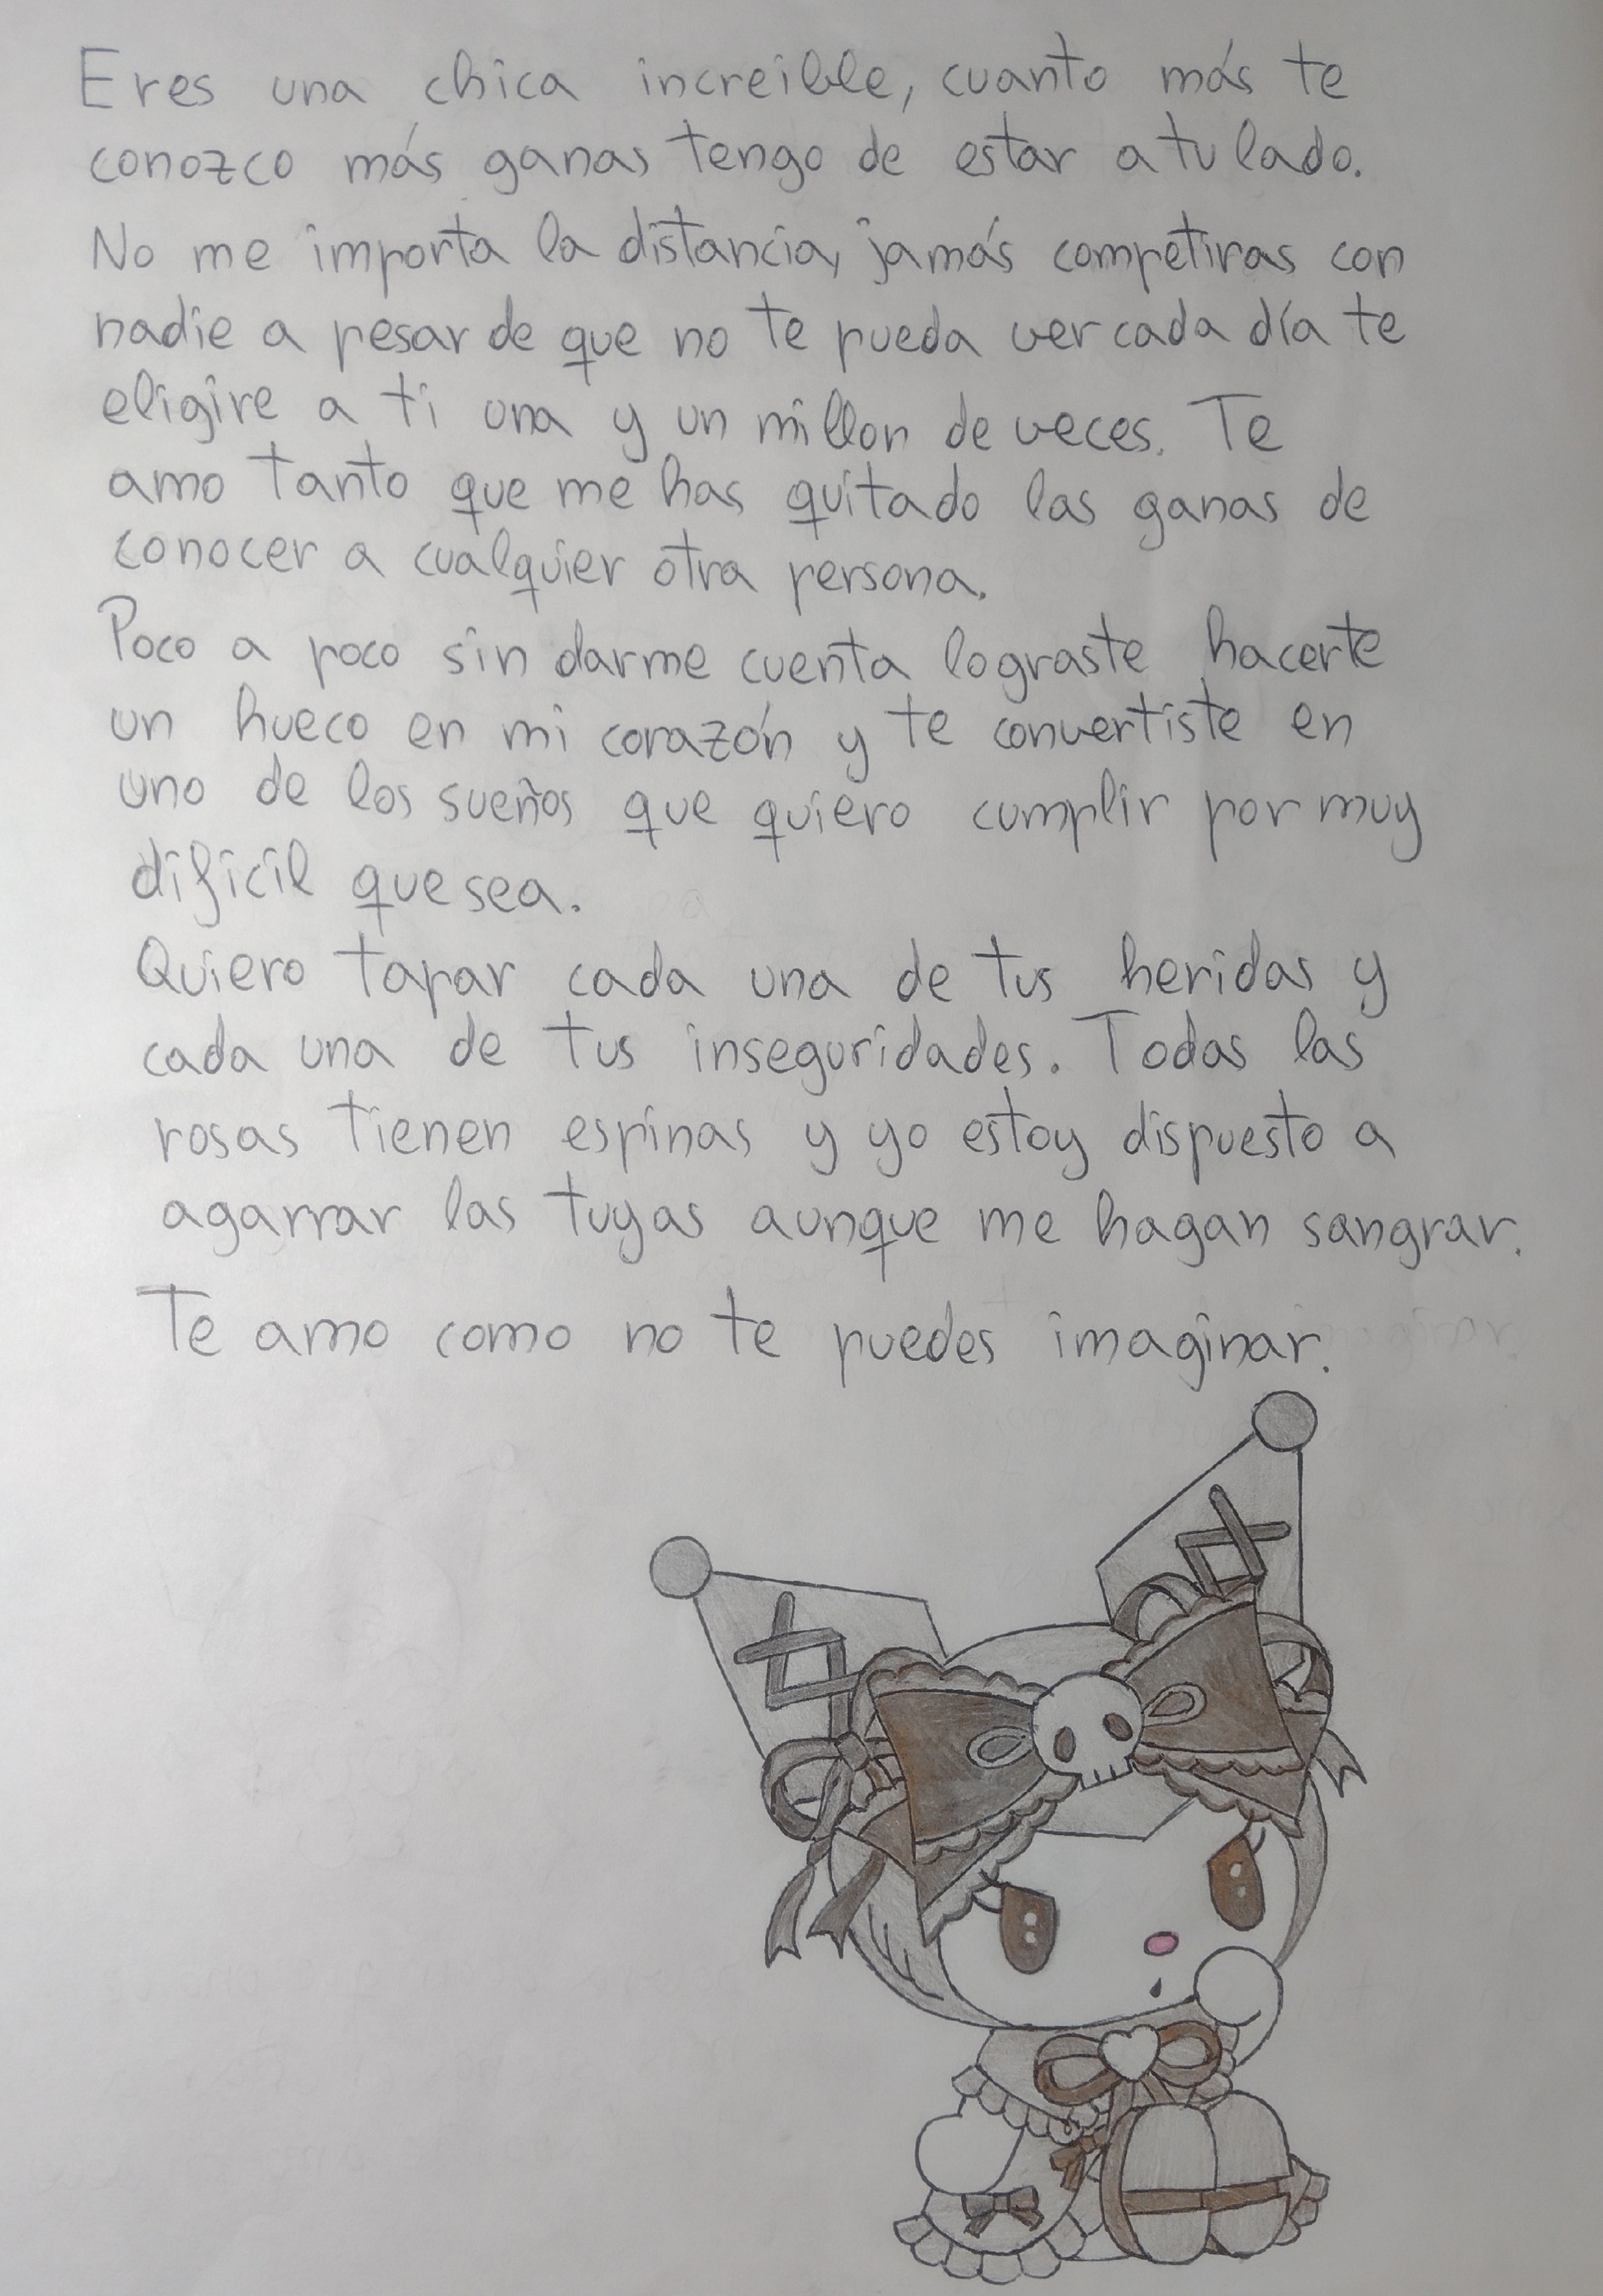 Eres una chica increible, cuanto más te
conozco más ganas tengo de estar a tu lado.
No me importa la distancia, jamás competiras con
nadie a pesar de que no te pueda ver cada día te
eligire a ti una y un millon de veces. Te
amo tanto que me has quitado las ganas de
conocer a cualquier otra persona.
Poco a poco sin darme cuenta lograste hacerte
un hueco en mi corazón y te convertiste en
uno de los sueños que quiero cumplir por muy
dificil que sea.
Quiero tapar cada una de tus heridas y
cada una de tus inseguridades. Todas las
rosas tienen espinas y yo estoy dispuesto a
agarrar las tuyas aunque me hagan sangrar.
Te amo como no te puedes imaginar.